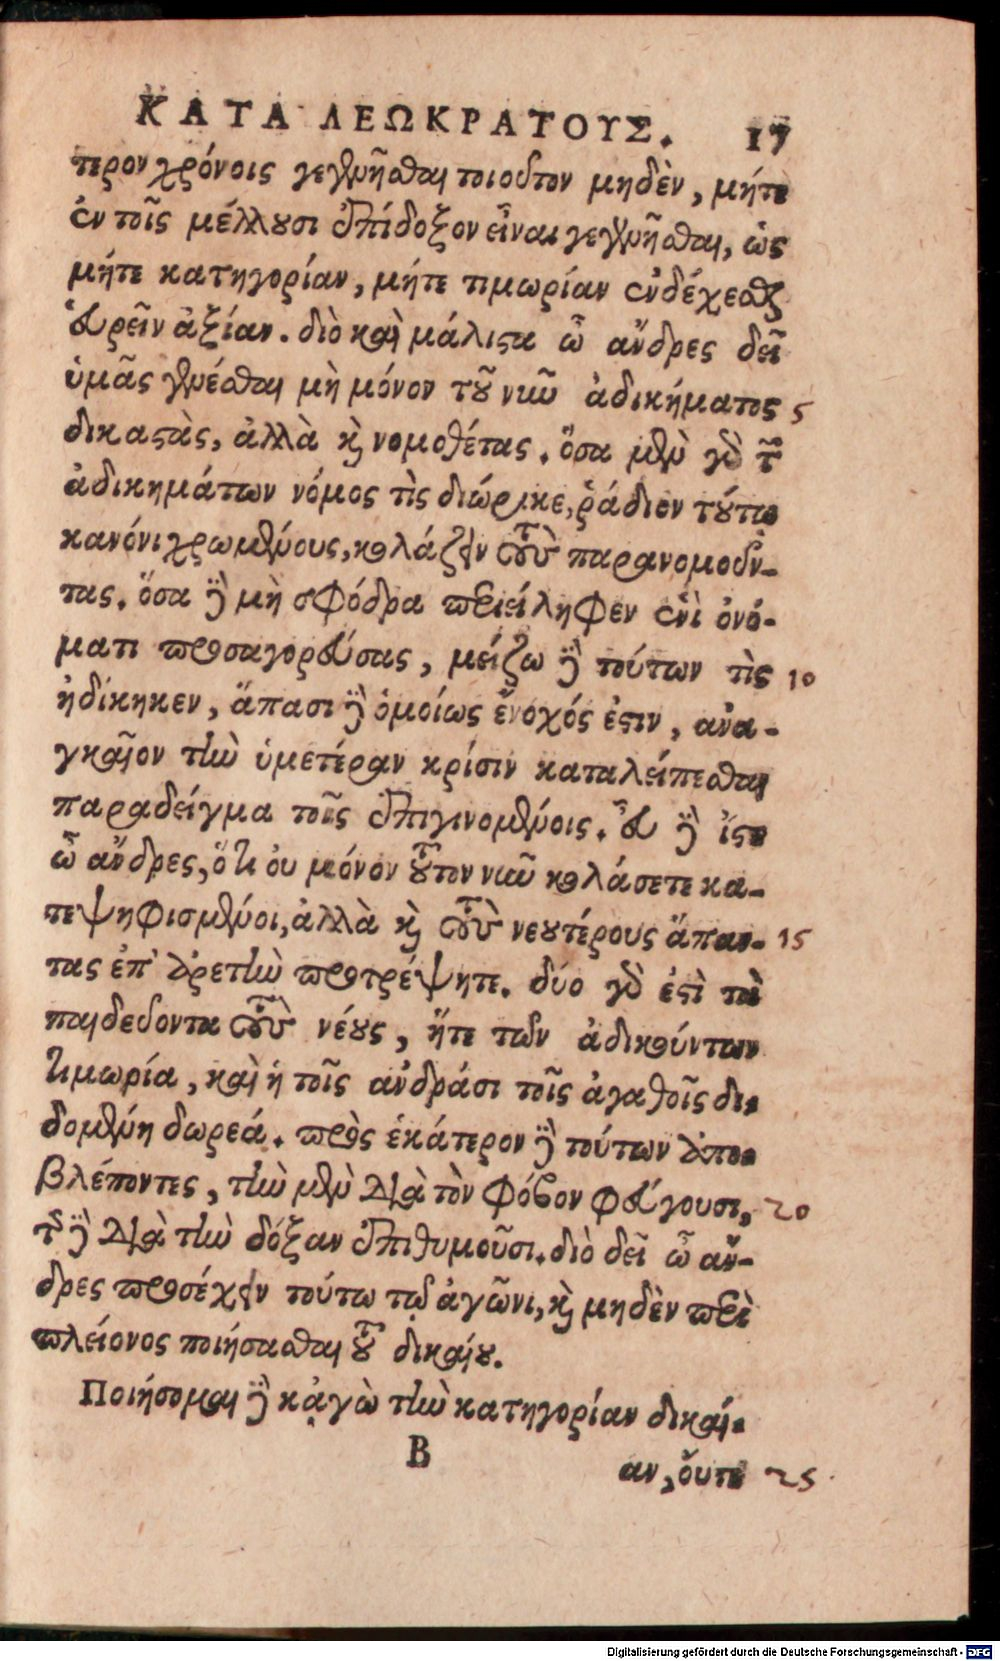 ΚΑΤΑ ΛΕΩΚΡΑΤΟΥΣ. 17
τερον χρόνοις γεγενῆσθαι τοιοῦτον μηδὲν, μήτε
ἐν τοῖς μέλλουσι ἐπίδοξον εἶναι γεγενῆσθαι, ὡς
μήτε κατηγορίαν, μήτε τιμωρίαν ἐνδέχεσθαι
εὑρεῖν ἀξίαν. διὸ καὶ μάλιστα ὦ ἄνδρες δεῖ
ὑμᾶς γενέσθαι μὴ μόνον τοῦ νῦν ἀδικήματος 5
δικαστὰς, ἀλλὰ καὶ νομοθέτας. ὅσα μὲν γὰρ τῶν
ἀδικημάτων νόμος τὶς διώρικε, ῥάδιον τούτῳ
κανόνι χρωμένους, κολάζειν τοὺς παρανομοῦν-
τας. ὅσα δὲ μὴ σφόδρα περιείληφεν ἑνὶ ὀνό-
ματι προσαγορεύσας, μείζω δὲ τούτων τὶς 10
ἠδίκηκεν, ἅπασι δὲ ὁμοίως ἔνοχός ἐστιν, ἀνα-
γκαῖον τὴν ὑμετέραν κρίσιν καταλείπεσθαι
παραδείγμα τοῖς ἐπιγινομένοις. εὖ δὲ ἴστε
ὦ ἄνδρες, ὅτι οὐ μόνον τοῦτον νῦν κολάσετε κα-
τεψηφισμένοι, ἀλλὰ καὶ τοὺς νεουτέρους ἅπαν- 15
τας ἐπ' ἀρετὴν προτρέψητε. δύο γὰρ ἐστὶ τὰ
παιδεύοντα τοὺς νέους, ἥτε τῶν ἀδικούντων
τιμωρία, καὶ ἡ τοῖς ἀνδράσι τοῖς ἀγαθοῖς δι-
δομένη δωρεά. πρὸς ἑκάτερον δὲ τούτων ἀπο-
βλέποντες, τὴν μὲν διὰ τὸν φόβον φεύγουσι, 20
τῆς δὲ διὰ τὴν δόξαν ἐπιθυμοῦσι. διὸ δεῖ ὦ ἄν-
δρες προσέχειν τούτῳ τῷ ἀγῶνι, καὶ μηδὲν περὶ
πλείονος ποιήσασθαι τοῦ δικαίου.
Ποιήσομαι δὲ κἀγὼ τὴν κατηγορίαν δικαί-
Β
αν, οὔτε 25
Digitalisierung gefördert durch die Deutsche Forschungsgemeinschaft - DFG